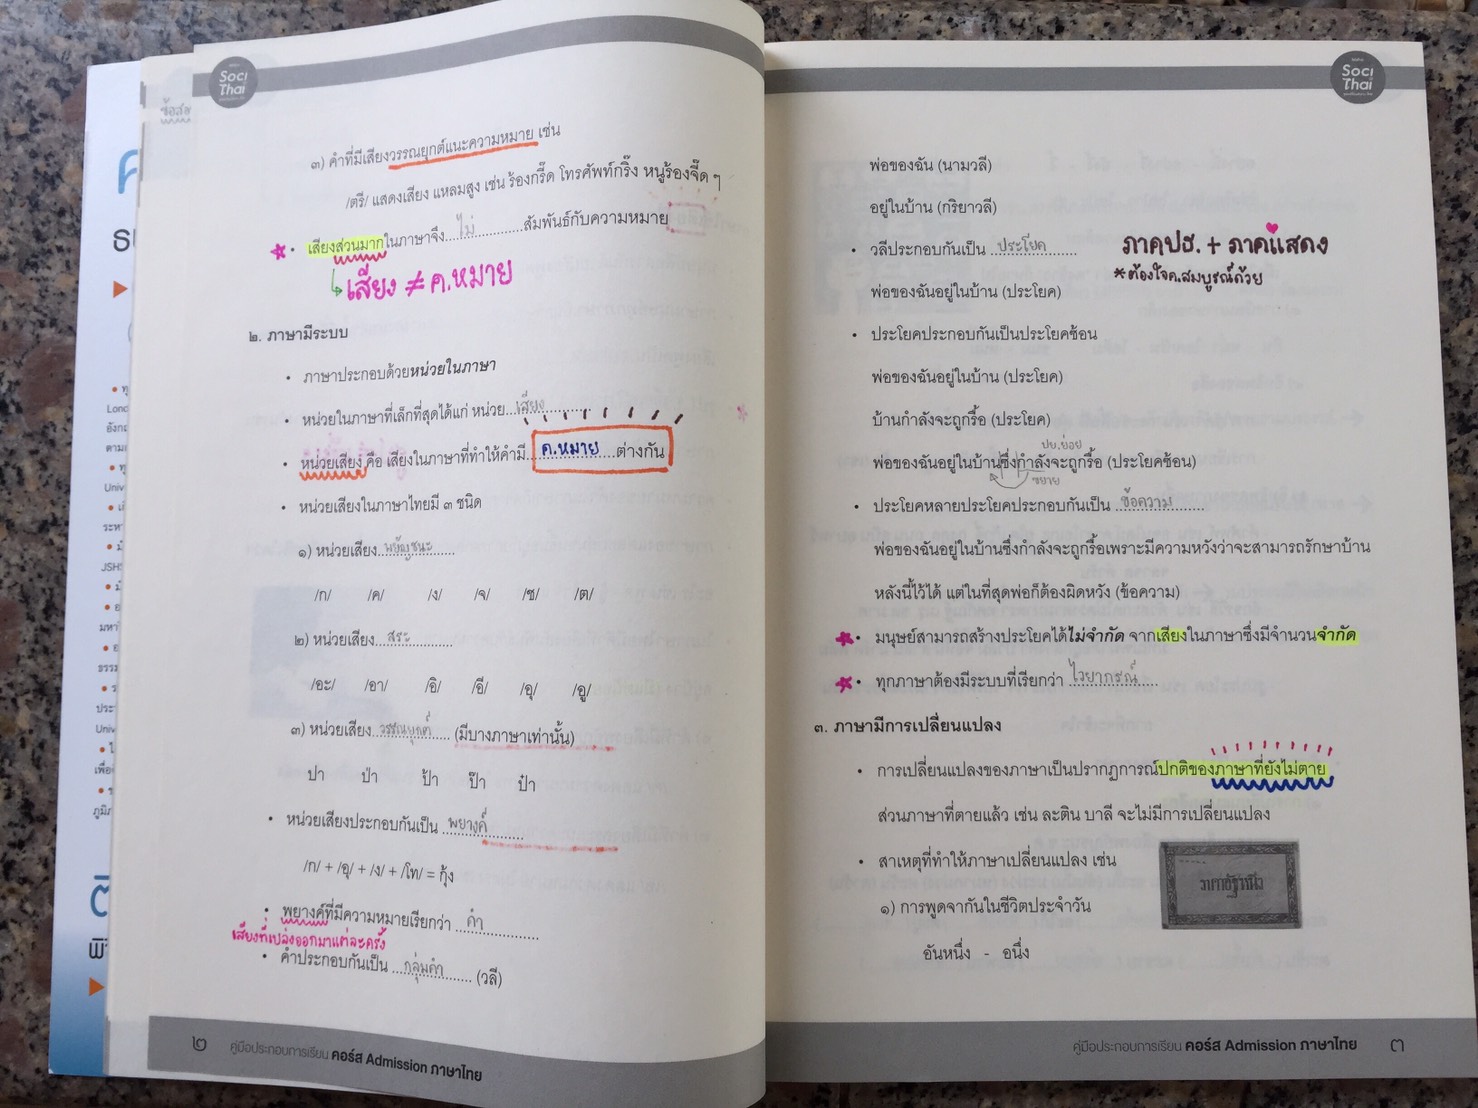 Soci
Thai
๓) คำที่มีเสียงวรรณยุกต์แนะความหมาย เช่น
/ตรี/ แสดงเสียง แหลมสูง เช่น ร้องกรี๊ด โทรศัพท์กริ๊ง หนูร้องจี๊ด ๆ
• เสียงส่วนมากในภาษาจึง....ไม่....สัมพันธ์กับความหมาย
↳ เสียง ≠ ค.หมาย
๒. ภาษามีระบบ
• ภาษาประกอบด้วยหน่วยในภาษา
• หน่วยในภาษาที่เล็กที่สุดได้แก่ หน่วย...เสียง...
• หน่วยเสียง คือ เสียงในภาษาที่ทำให้คำมี...ค.หมาย...ต่างกัน
• หน่วยเสียงในภาษาไทยมี ๓ ชนิด
๑) หน่วยเสียง...พยัญชนะ...
/ก/ /ค/ /ง/ /จ/ /ช/ /ต/
๒) หน่วยเสียง...สระ...
/อะ/ /อา/ /อิ/ /อี/ /อุ/ /อู/
๓) หน่วยเสียง...วรรณยุกต์... (มีบางภาษาเท่านั้น)
ปา ป่า ป้า ป๊า ป๋า
• หน่วยเสียงประกอบกันเป็น ...พยางค์...
/ก/ + /อุ/ + /ง/ + /โท/ = กุ้ง
• พยางค์ที่มีความหมายเรียกว่า ...คำ...
เสียงที่เปล่งออกมาแต่ละครั้ง
• คำประกอบกันเป็น ...กลุ่มคำ... (วลี)
๒ คู่มือประกอบการเรียน คอร์ส Admission ภาษาไทย
Soci
Thai
พ่อของฉัน (นามวลี)
อยู่ในบ้าน (กริยาวลี)
• วลีประกอบกันเป็น ...ประโยค...
ภาคปธ. + ภาคแสดง
*ต้องใจค.สมบูรณ์ด้วย
พ่อของฉันอยู่ในบ้าน (ประโยค)
• ประโยคประกอบกันเป็นประโยคซ้อน
พ่อของฉันอยู่ในบ้าน (ประโยค)
บ้านกำลังจะถูกรื้อ (ประโยค)
ปย.ย่อย
พ่อของฉันอยู่ในบ้านซึ่งกำลังจะถูกรื้อ (ประโยคซ้อน)
ขยาย
• ประโยคหลายประโยคประกอบกันเป็น ...ข้อความ...
พ่อของฉันอยู่ในบ้านซึ่งกำลังจะถูกรื้อเพราะมีความหวังว่าจะสามารถรักษาบ้าน
หลังนี้ไว้ได้ แต่ในที่สุดพ่อก็ต้องผิดหวัง (ข้อความ)
• มนุษย์สามารถสร้างประโยคได้ไม่จำกัด จากเสียงในภาษาซึ่งมีจำนวนจำกัด
• ทุกภาษาต้องมีระบบที่เรียกว่า ...ไวยากรณ์...
๓. ภาษามีการเปลี่ยนแปลง
• การเปลี่ยนแปลงของภาษาเป็นปรากฏการณ์ปกติของภาษาที่ยังไม่ตาย
ส่วนภาษาที่ตายแล้ว เช่น ละติน บาลี จะไม่มีการเปลี่ยนแปลง
• สาเหตุที่ทำให้ภาษาเปลี่ยนแปลง เช่น
๑) การพูดจากันในชีวิตประจำวัน
อันหนึ่ง - อนึ่ง
คู่มือประกอบการเรียน คอร์ส Admission ภาษาไทย ๓